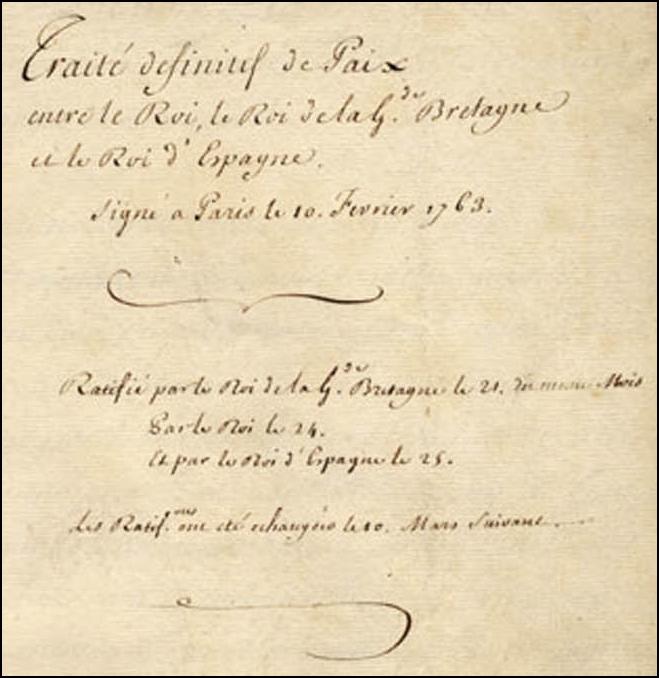 Traité definitif de Paix
entre le Roi, le Roi de la G.de Bretagne
et le Roi d'Espagne.
Signé a Paris le 10. Fevrier 1763.
Ratifié par le Roi de la G.de Bretagne le 21. du meme Mois
Par le Roi le 24.
Et par le Roi d'Espagne le 25.
Les Ratif.ons ont eté echangées le 10. Mars Suivant.